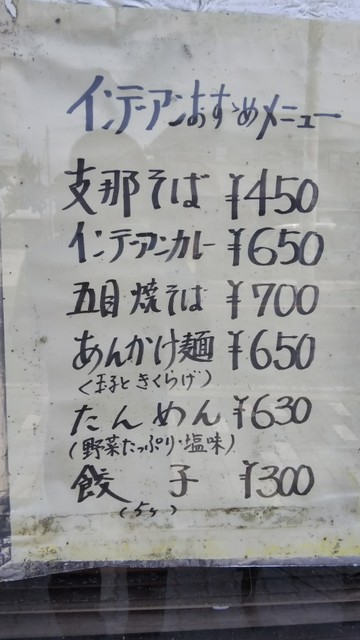 インデアンおすゝめメニュー
支那そば ¥450
インデアンカレー ¥650
五目焼そば ¥700
あんかけ麺 ¥650
(玉子ときくらげ)
たんめん ¥630
(野菜たっぷり・塩味)
餃子 ¥300
(5ヶ)